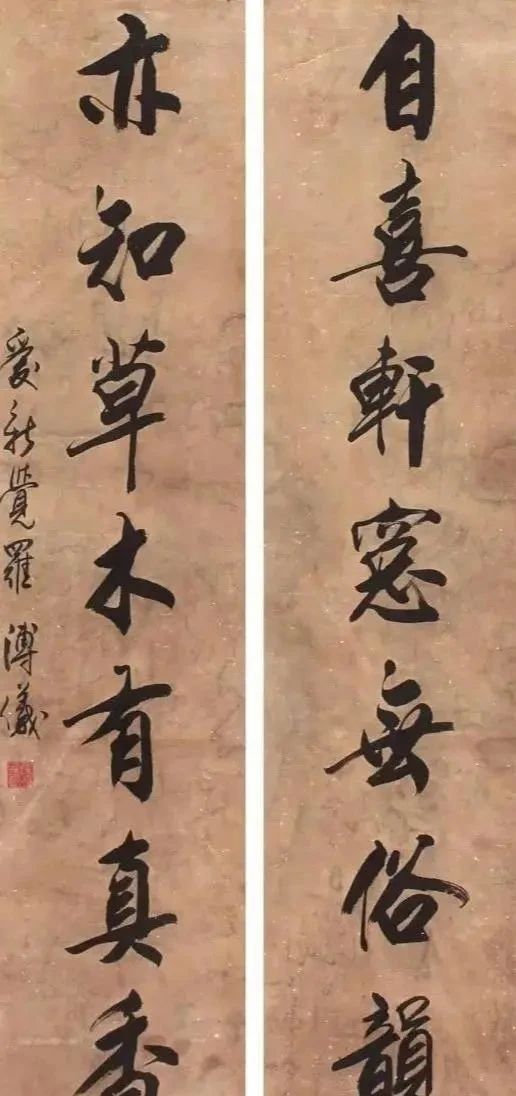 自喜軒窓無俗韻
亦知草木有真香
愛新覺羅溥儀